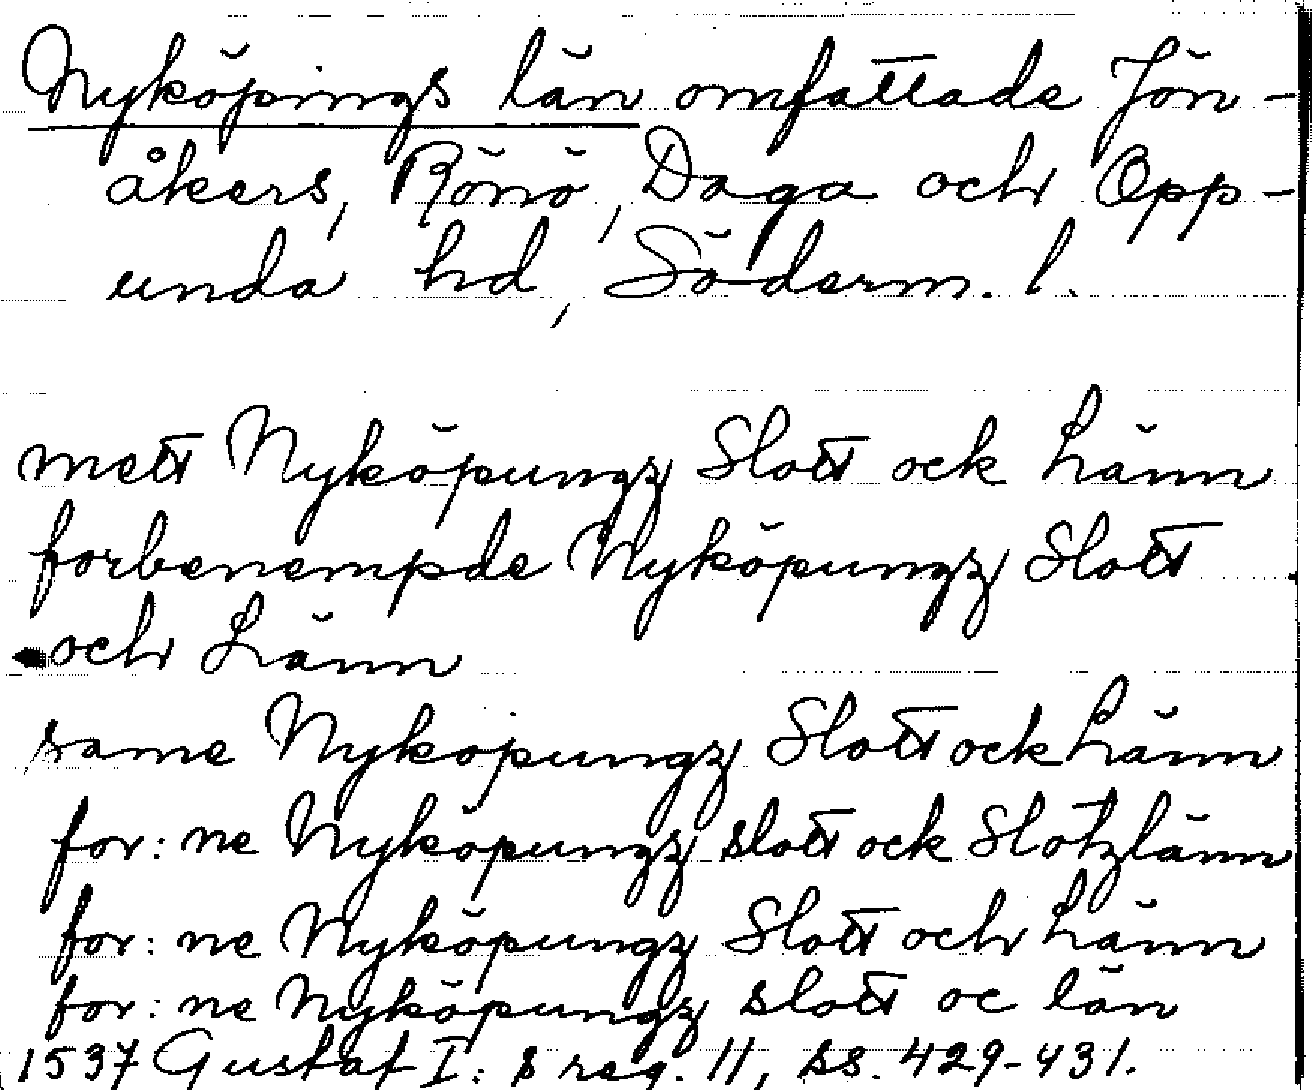 Nyköpings län omfattade Jön-
åkers, Rönö, Daga och Opp-
unda hd, Söderm. l.
mett Nyköpungz Slott ock Länn
forbenempde Nyköpungz Slott
och Länn
same Nykopungz Slott ock Länn
for: ne Nyköpungz slott ock Slotzlänn
for: ne Nyköpungz Slott och Länn
for: ne Nyköpungz slott oc län
1537 Gustaf I: s reg. 11, ss. 429-431.